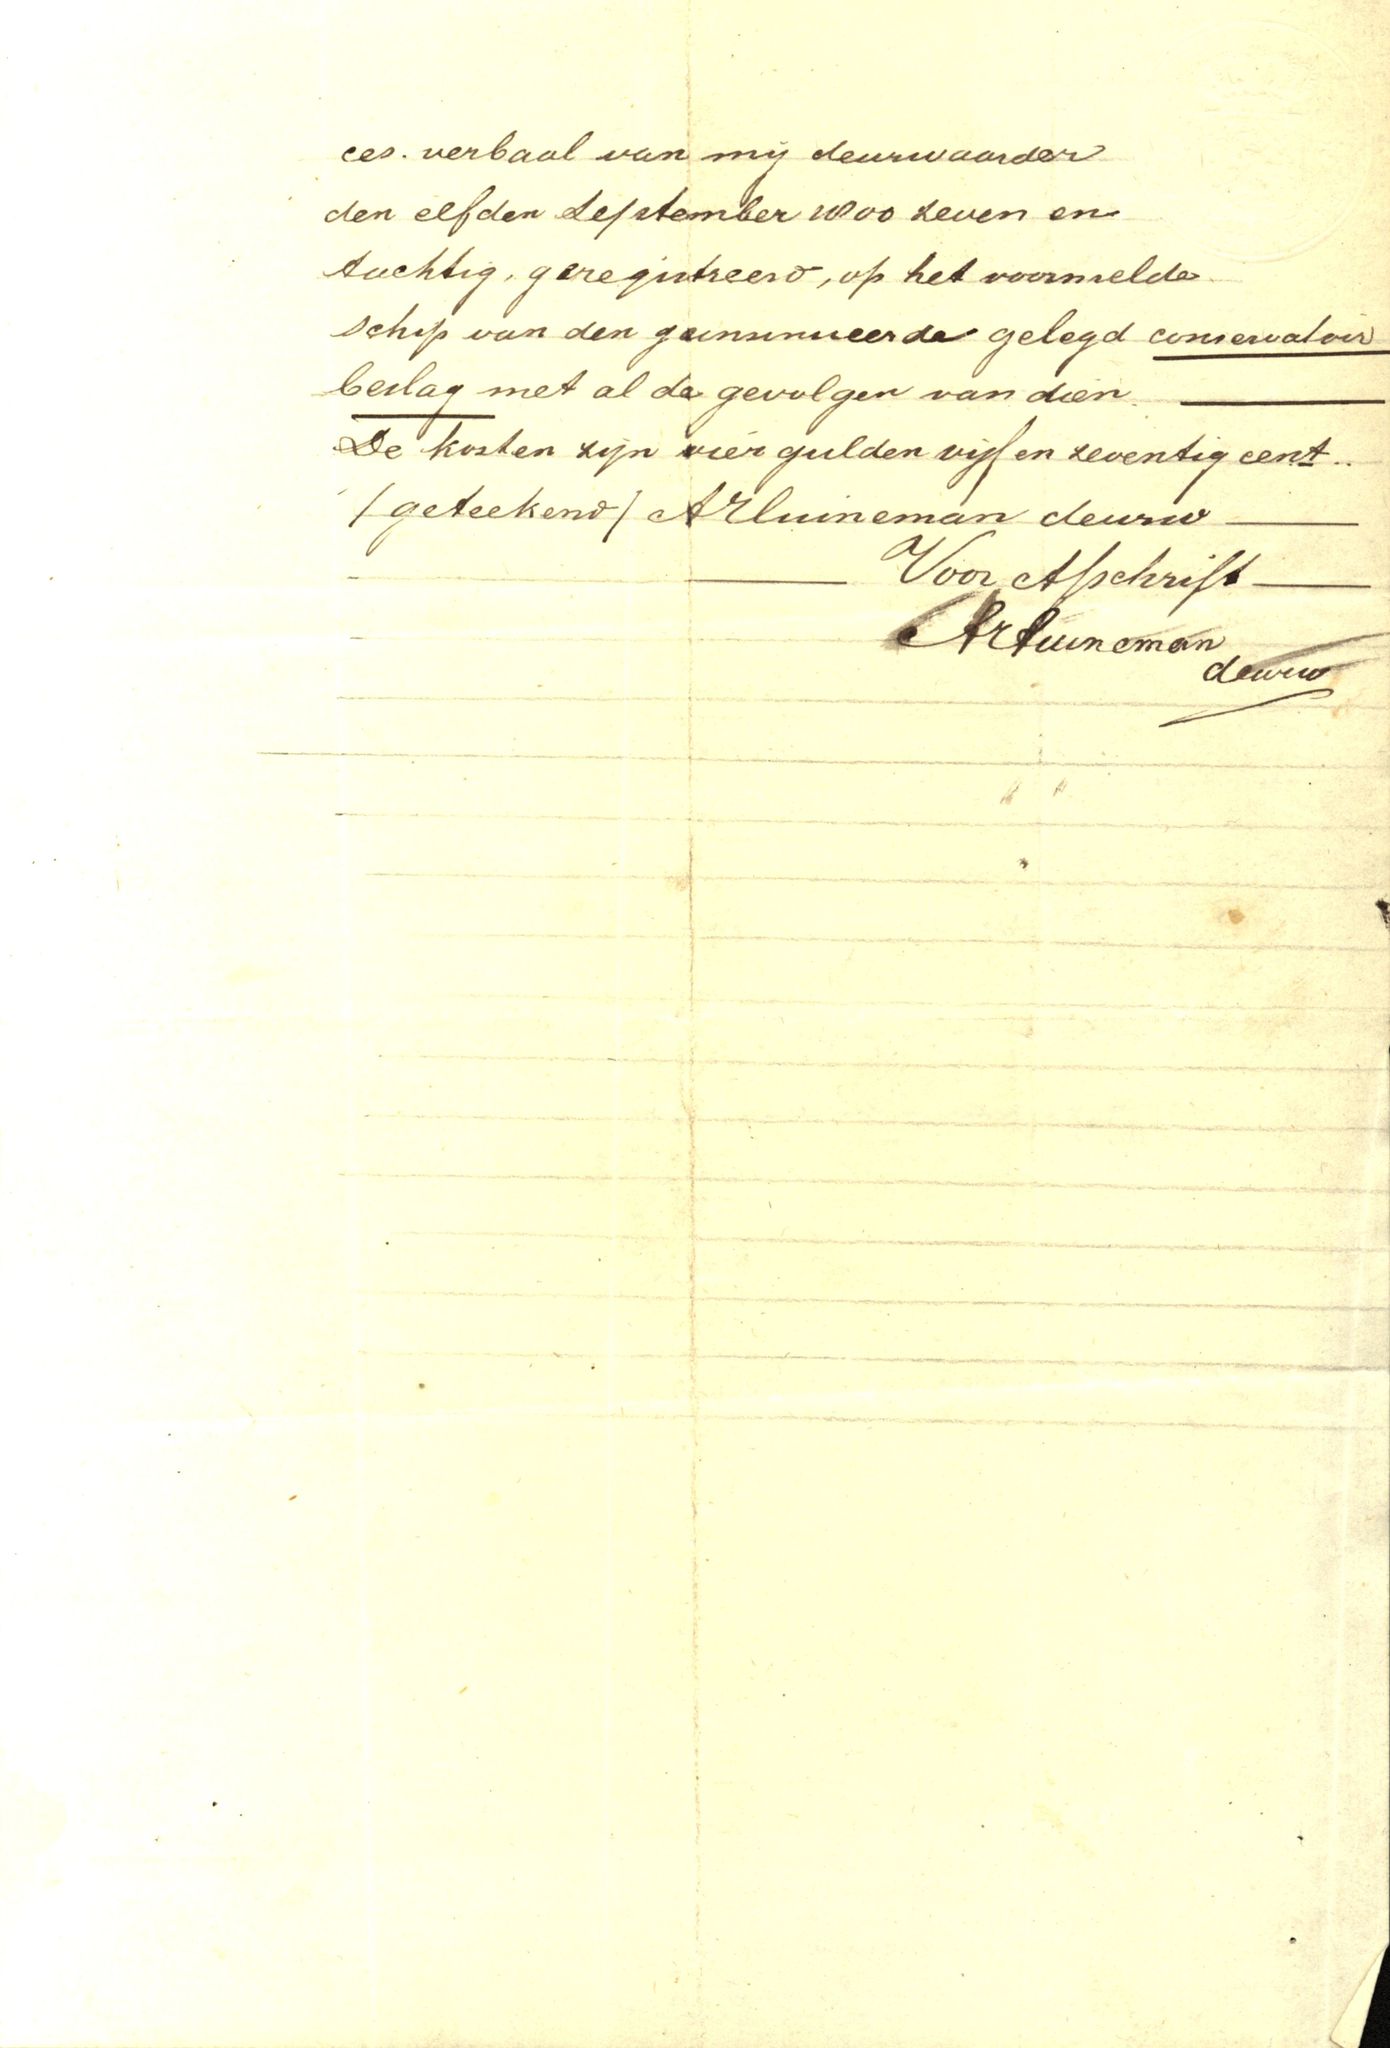 ces. verbaal van mij deurwaarder
den elfden September 1800 zeven en
tachtig, geregistreerd, op het voormelde
schip van den geinsinueerde gelegd conservatoir
beslag met al de gevolgen van dien.
De kosten zijn vier gulden vijf en zeventig cent..
/geteekend/ deurw
Voor Afschrift
deurw